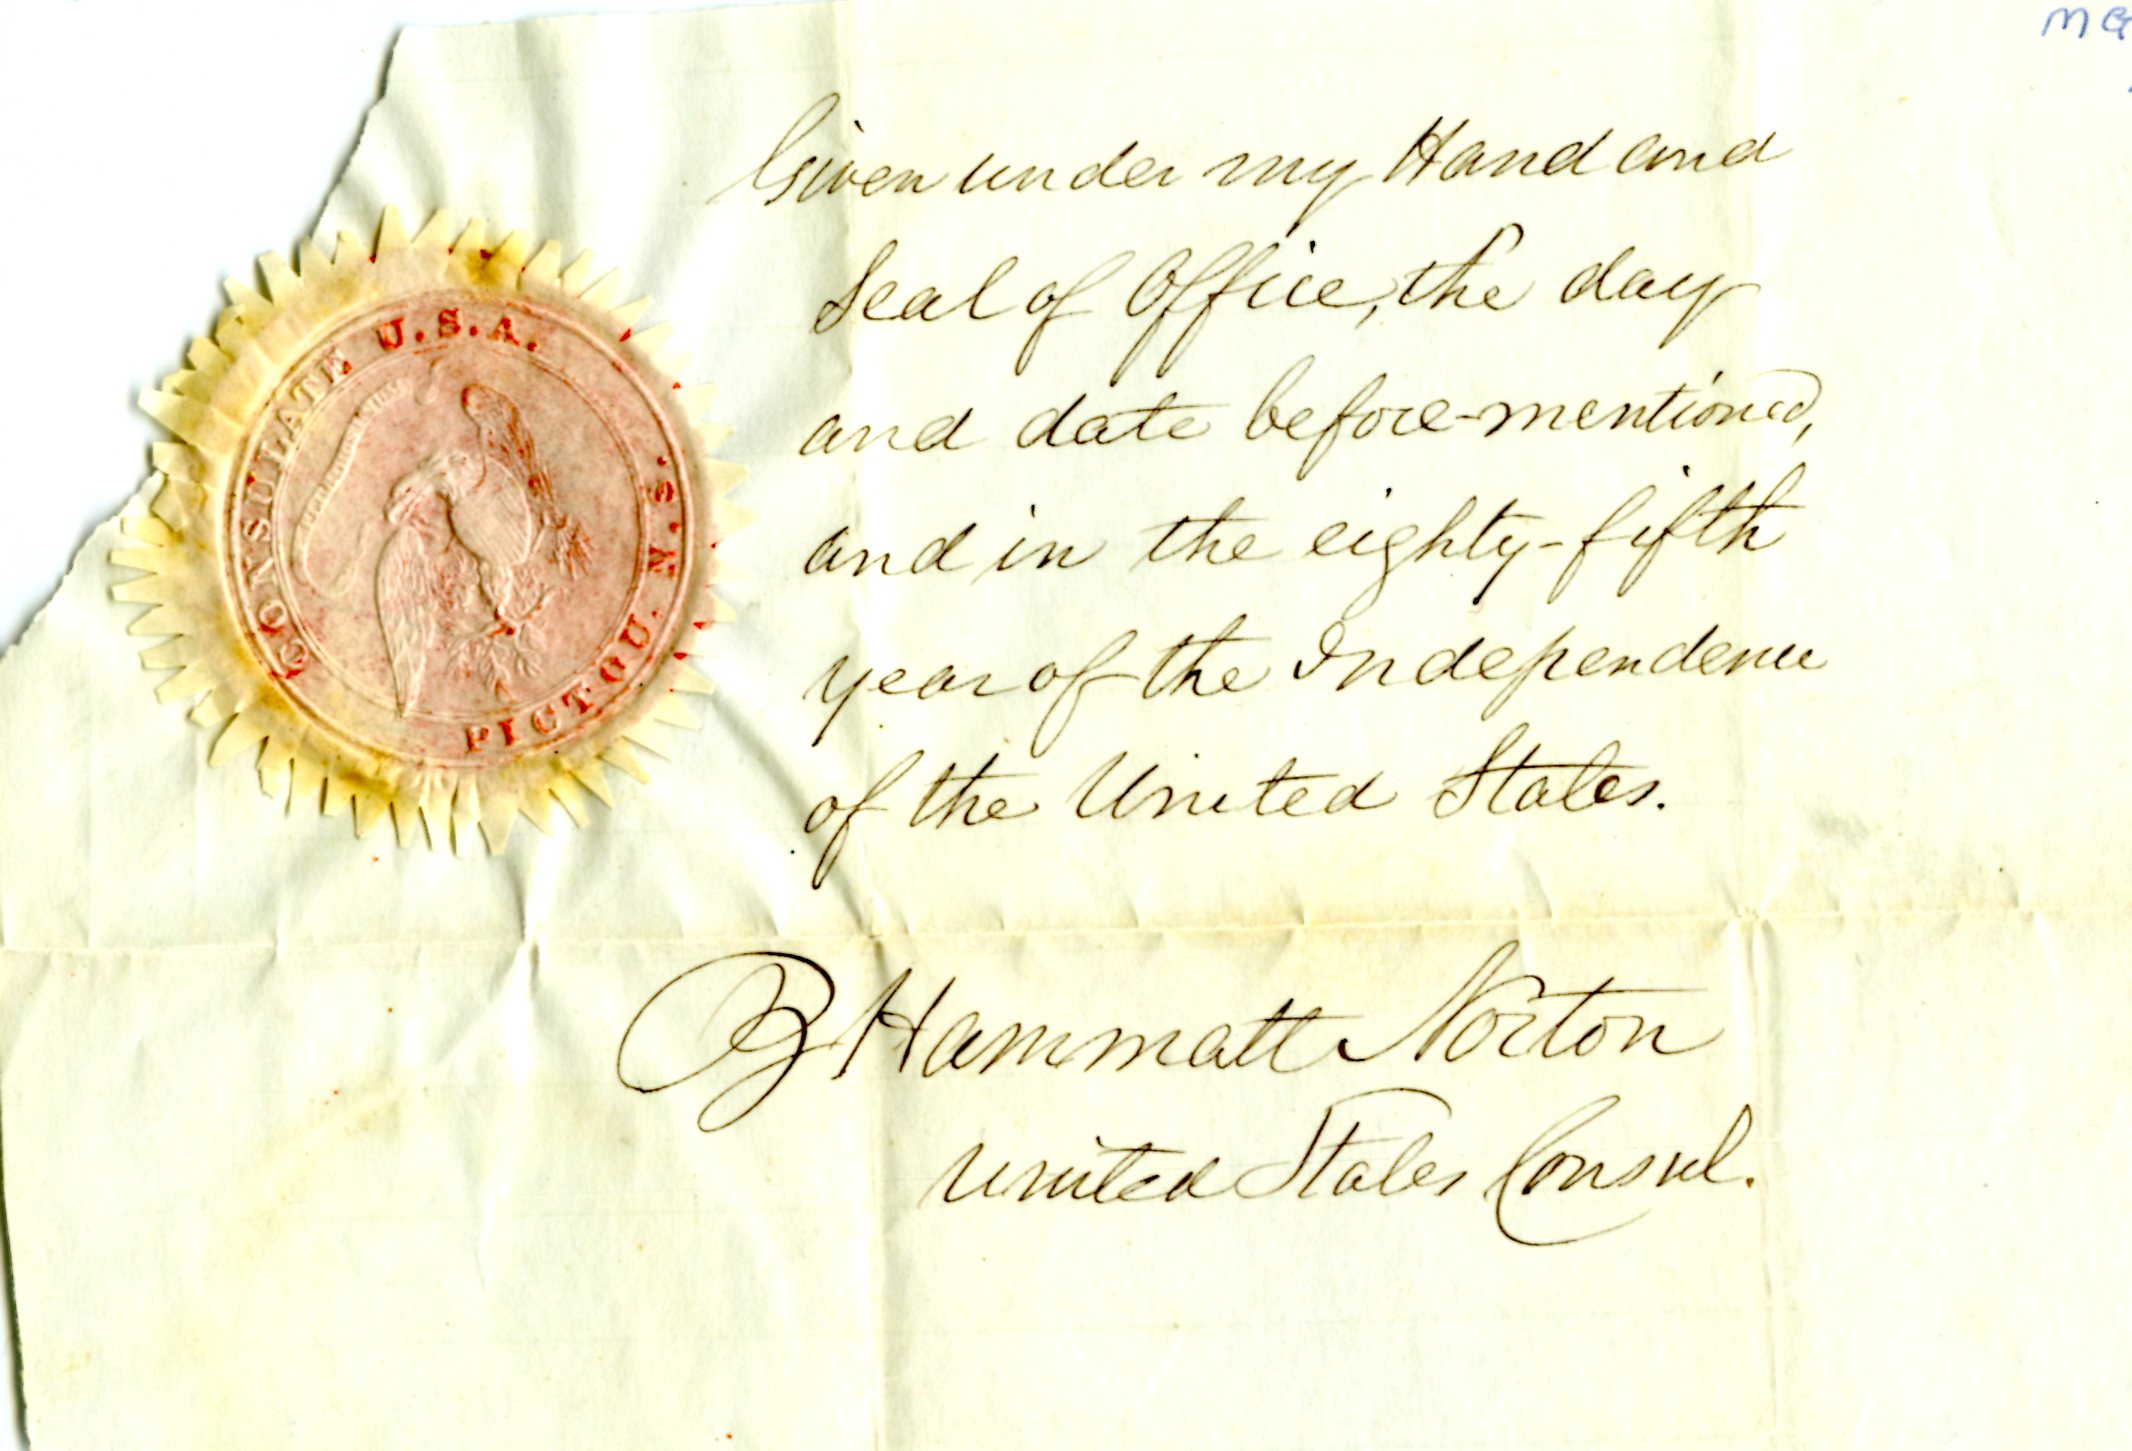 Given under my Hand and
Seal of Office, the day
and date before-mentioned,
and in the eighty-fifth
year of the Independence
of the United States.
B Hammatt Norton
United States Consul.
CONSULATE U.S.A.
PICTOU. N.S.